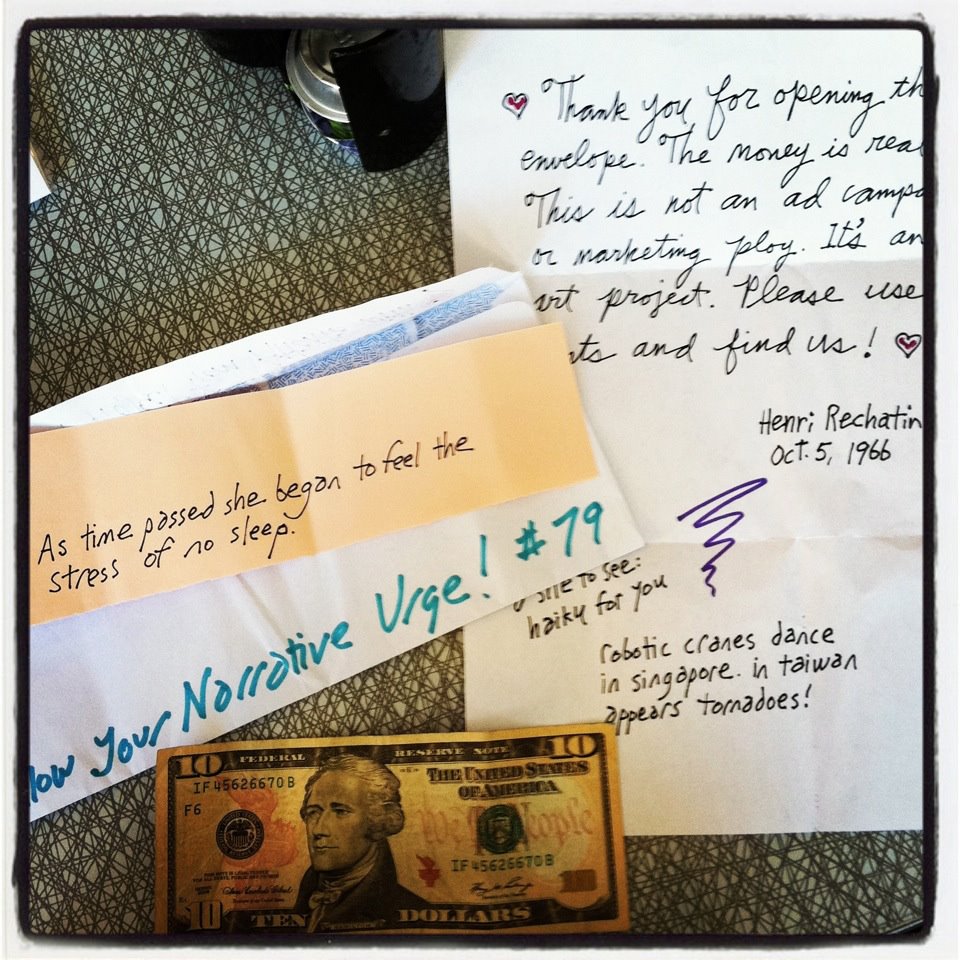 Thank you for opening th
envelope. The money is rea
This is not an ad campa
or marketing ploy. It's an
art project. Please use
and find us!
Henri Rechatin
Oct. 5, 1966
to see:
haiku for you
robotic cranes dance
in singapore. in taiwan
appears tornadoes!
As time passed she began to feel the
stress of no sleep.
Your Narrative Urge! #79
10 FEDERAL RESERVE NOTE 10
IF 45626670 B
THE UNITED STATES
OF AMERICA
F6
We the People
IF 45626670 B
10 TEN DOLLARS